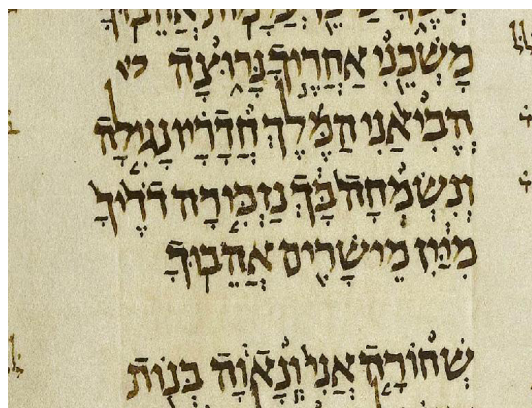 מָשְׁכֵנִי אַחֲרֶיךָ נָּרוּצָה
הֱבִיאַנִי הַמֶּלֶךְ חֲדָרָיו נָגִילָה
וְנִשְׂמְחָה בָּךְ נַזְכִּירָה דֹדֶיךָ
מִיַּיִן מֵישָׁרִים אֲהֵבוּךָ
שְׁחוֹרָה אֲנִי וְנָאוָה בְּנוֹת